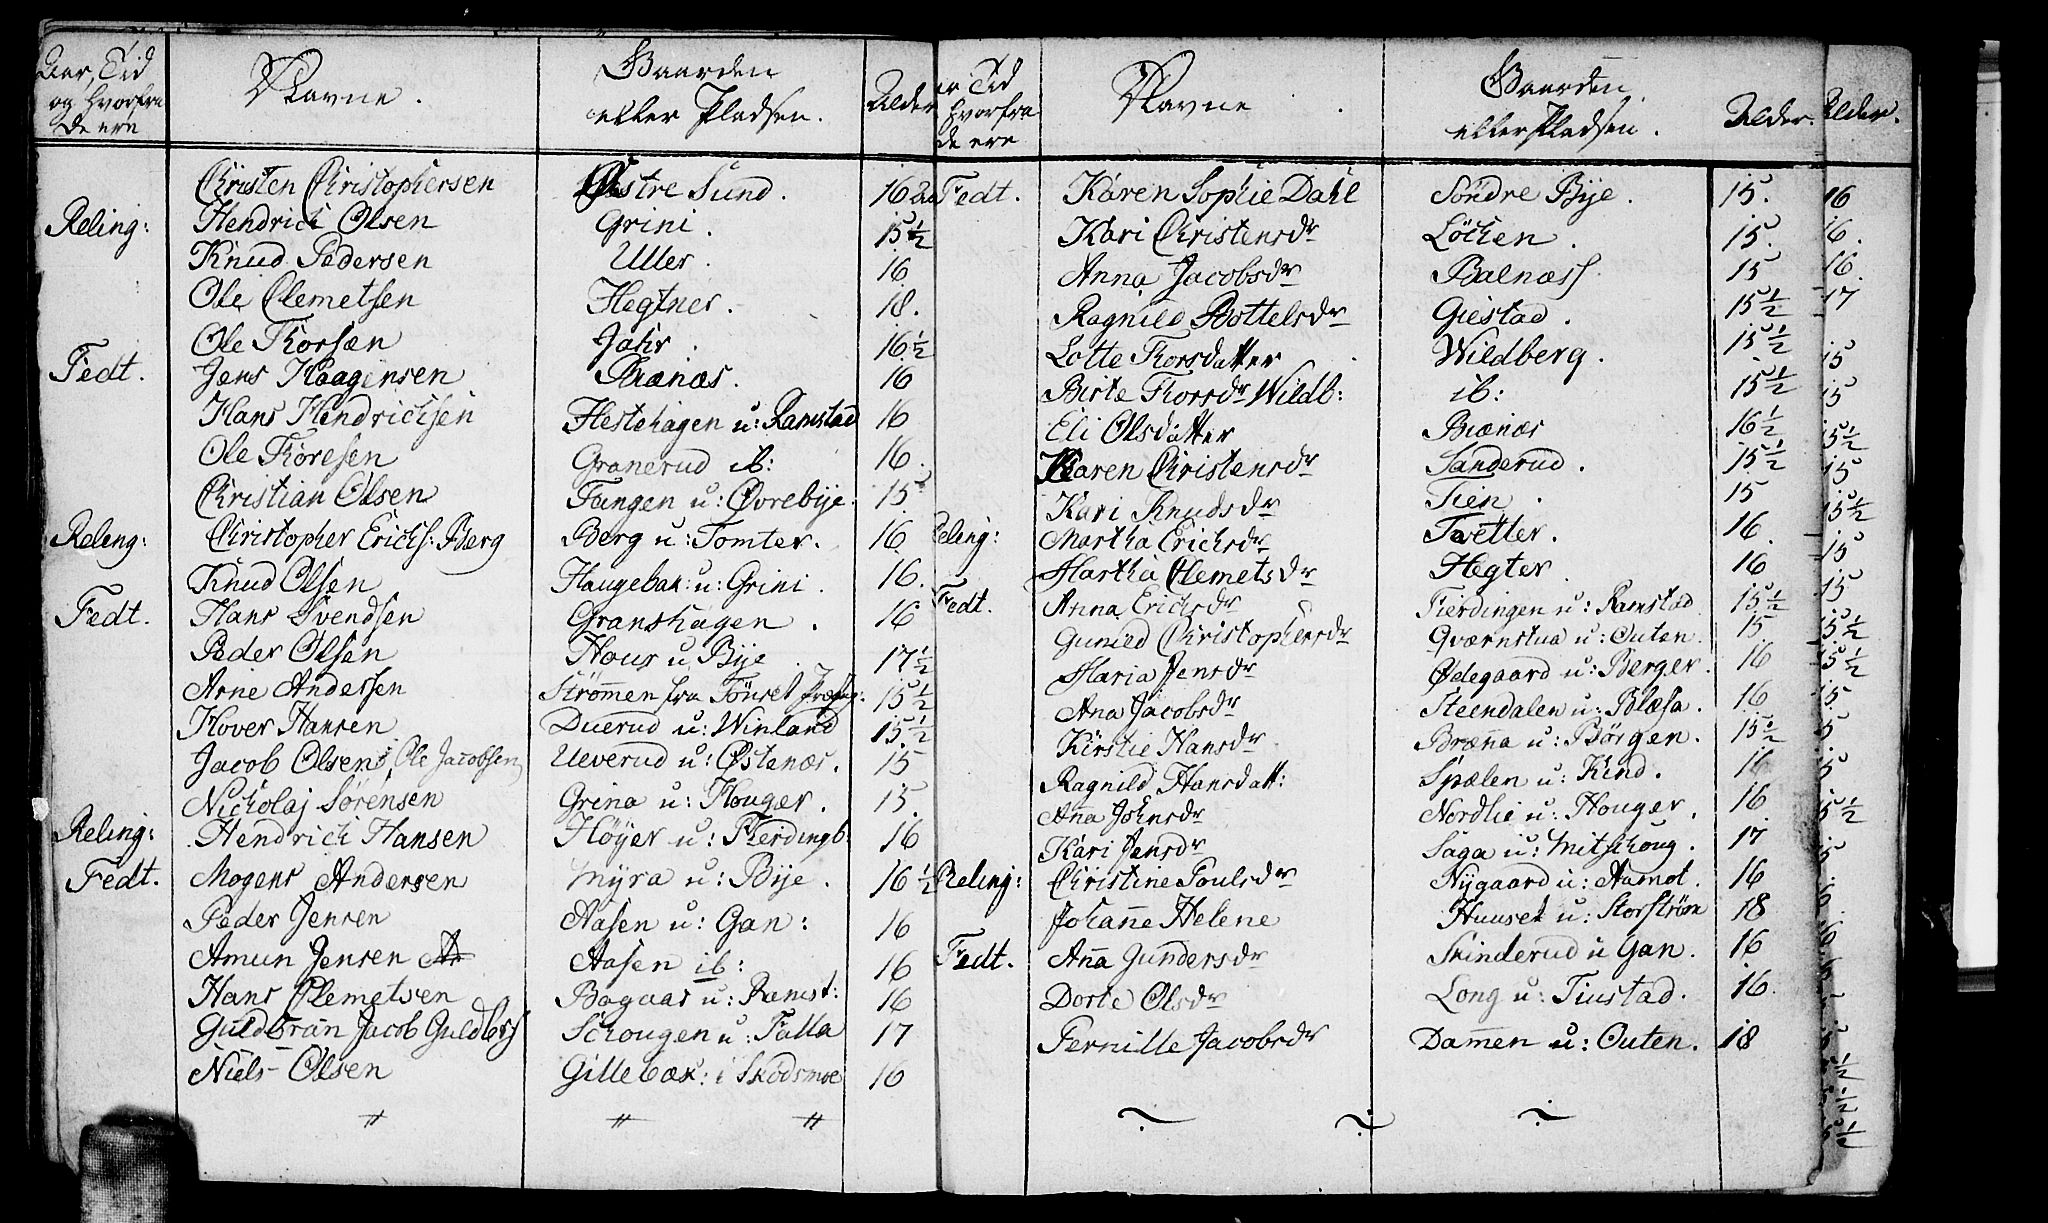 Aar, Tid og Hvorfra de ere | Navne. | Gaarden eller Pladsen. | Alder
Christen Christophersen | Østre Sund. | 16 Aa
Reling: Hendrich Olsen | Grini. | 15 1/2
Knud Pedersen | Uller. | 16
Ole Clemetsen | Hegtner. | 18.
Ole Thorsæn | Jahr. | 16 1/2
Fedt. Jens Haagensen | Brænæs. | 16
Hans Hendrichsen | Hestehagen u: Ramstad | 16
Ole Thoresen | Granerud ib: | 16.
Christian Olsen | Fangen u: Øvrebÿe. | 15
Reling: Christopher Erichs: Berg | Berg u: Tomter. | 16
Knud Olsen | Haugebak: u: Grini. | 16.
Fedt. Hans Svendsen | Granshagen. | 16
Peder Olsen | Hous u Bÿe | 17 1/2
Arne Andersen | Strømmen fra Tønset | 15 1/2
Hover Hansen | Duerud u: Winland | 15 1/2
Jacob Olsen, Ole Jacobsen | Ueverud u: Østenæs. | 15
Nickolaj Sørensen | Grina u: Houger. | 15.
Reling: Hendrich Hansen | Høÿer u: Fierdingb: | 16
Fedt. Mogens Andersen | Mÿra u: Bÿe. | 16 1/2
Peder Jensen | Aasen u: Gan: | 16
Amun Jensen | Aasen ib: | 16
Hans Clemetsen | Bagaas u: Ramst: | 16
Guldbran Jacob Guldbrs | Schougen u: Falla | 17
Niels Olsen | Gillebæk: i Skodsmoe | 16
〃 | 〃 | 〃
Tid Hvorfra de ere | Navne. | Gaarden eller Pladsen. | Alder.
Fedt. Karen Sophie Dahl | Søndre Bÿe. | 15.
Kari Christensdr | Løcken. | 15.
Anna Jacobsdr | Balnæss. | 15
Ragnild Bottelsdr | Giestad. | 15 1/2
Lotte Thorsdatter | Wildberg. | 15 1/2
Birte Thorsdr Wildb: | ib: | 15 1/2
Eli Olsdatter | Brænæs | 16 1/2
Karen Christensdr | Sanderud. | 15 1/2
Kari Knudsdr | Tien. | 15
Reling: Martha Erichsdr | Tvetter. | 16.
Martha Clemetsdr | Hegter. | 16
Fedt. Anna Erichsdr | Fierdingen u: Ramstad. | 15 1/2
Gunild Christophersdr | Qværnstua u: Outen. | 15
Maria Jensdr | Ødegaard u: Berger. | 16
Ana Jacobsdr | Steendalen u: Blæsa. | 16
Kirstie Hansdr | Brænna u: Børgen. | 15 1/2
Ragnild Hansdatt: | Spælen u: Kind. | 16
Anna Johnsdr | Nordlie u: Houger. | 16
Kari Jensdr | Saga u: Mitschoug. | 17
Reling: Christine Poulsdr | Nÿgaard u: Aamot. | 16
Johanne Helene | Huuset u: Storstrøm | 18
Fedt. Anna Gundersdr | Skinderud u Gan. | 16
Dorte Olsdr | Long u: Tiustad. | 16.
Pernille Jacobsdr | Dammen u: Outen. | 18
Alder.
16
16.
16.
17
15
15
15 1/2
15
15 1/2
15
15
15 1/2
15 1/2
15